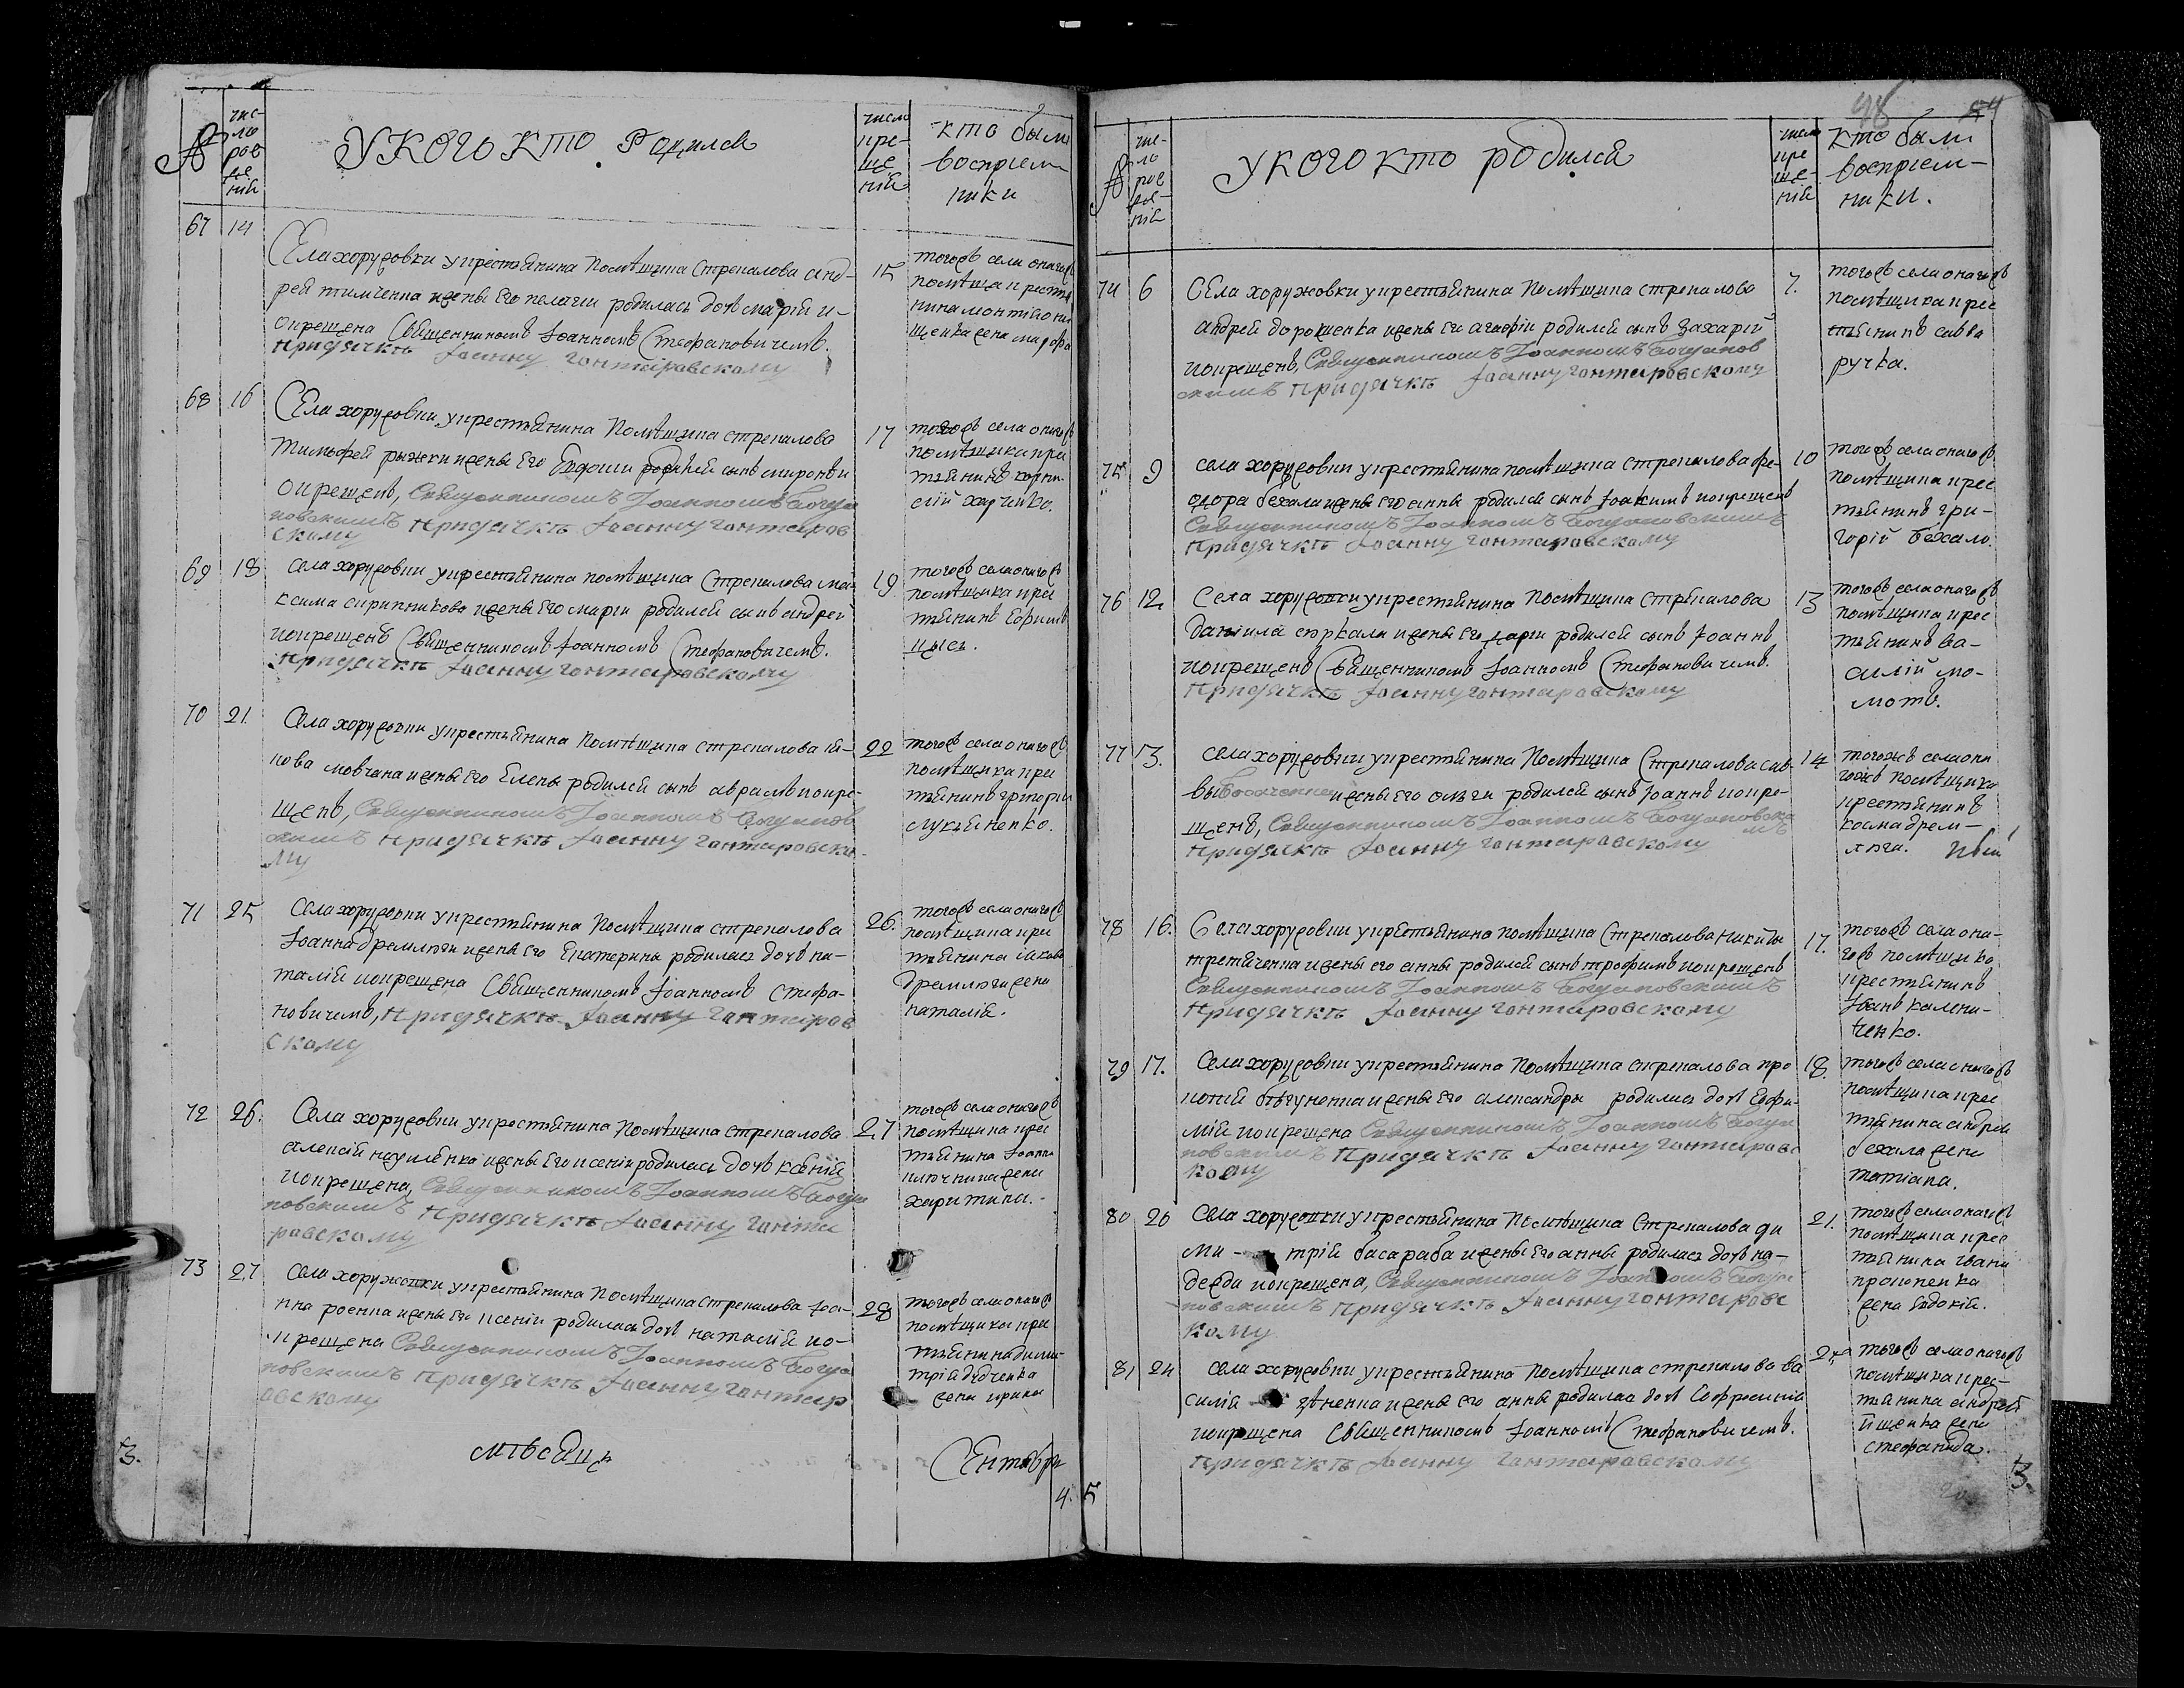 №
чис-
ло
рож
де
ній
У КОГО КТО Родился
число
кре-
ще
ній
кто были
воспріем
ники
67 14
Села хоружовки у крестьянина Помѣщика Стрекалова анд-
рея тимченка и жены Его пелагии родилась дочь марія и-
окрещена Священникомъ Іоанномъ Стефановичемъ.
При дячкѣ Іоанну гонтаровскому
15
тогожъ села оногожъ
помѣщика крестья
нина
жена марфа
68 16
Села хоружовки у крестьянина Помѣщика стрекалова
Тимофея рыжки и жены Его Евдокии родился сынъ миронъ и
окрещенъ, Священникомъ Іоанномъ Богда
новскимъ При дячкѣ Іоанну гонтаров
скому
17
тогожъ села оногожъ
помѣщика кре
тьянинъ корни
елій харчилко.
69 18
Села хоружовки у крестьянина помѣщика Стрекалова мак
ксима скрипникова и жены Его марии родился сынъ андрей
и окрещенъ Священникомъ Іоанномъ Стефановичемъ.
При дячкѣ Іоанну гонтаровскому
19
тогожъ села оногожъ
помѣщика кре
тьянинъ Ефимъ
цысь.
70 21
Села хоружовки у крестьянина Помѣщика стрекалова іа-
кова мовчана и жены Его Елены родился сынъ авраамъ и окре-
щенъ, Священникомъ Іоанномъ Богданов
скимъ При дячкѣ Іоанну гонтаровско-
му
22
тогожъ села оногожъ
помѣщика кре
тьянинъ григорій
лукьяненко.
71 25
Села хоружовки у крестьянина Помѣщика стрекалова
Іоанна дремлюги и жены Его Екатерины родилась дочь на-
талія и окрещена Священникомъ Іоанномъ Стефа-
новичемъ, При дячкѣ Іоанну гонтаров
скому
26.
тогожъ села оногожъ
помѣщика кре
тьянина іакова
дремлюги жена
наталія.
72 26.
Села хоружовки у крестьянина помѣщика стрекалова
алексѣя и жены Его ксеніи родилась дочь ксенія
и окрещена, Священникомъ Іоанномъ Богда
новскимъ При дячкѣ Іоанну гонта
ровскому
27
тогожъ села оногожъ
помѣщика крес
тьянина Іоанна
ключника жена
харитина.
73 27
Села хоружовки у крестьянина Помѣщика стрекалова Іоа-
нна роенка и жены Его ксеніи родилась дочь наталія и о-
крещена Священникомъ Іоанномъ Богда
новскимъ При дячкѣ Іоанну гонтар
овскому
28
тогожъ села оногожъ
помѣщика кре
тьянина дими-
трія дядченка
жена ирина
3.
мѣсяца
Сентябрь
4.
98 54
№
чис-
ло
рож
де-
ній
У КОГО КТО РОДИЛСЯ
число
кре
ще-
ній
кто были
воспріем-
ники.
74 6
Села хоружовки у крестьянина Помѣщика стрекалова
андрея дорошенка и жены Его агафіи родился сынъ Захарій
и окрещенъ, Священникомъ Іоанномъ Богданов
скимъ При дячкѣ Іоанну гонтаровскому
7.
тогожъ села оногожъ
помѣщика крес
тьянинъ савва
ручка.
75 9
села хоружовки у крестьянина помѣщика стрекалова фе-
одора бехала и жены Его анны родился сынъ Іоакимъ и окрещенъ
Священникомъ Іоанномъ Богдановскимъ
При дячкѣ Іоанну гонтаровскому
10
тогожъ села оногожъ
помѣщика крес
тьянинъ гри-
горій бехало.
76 12
Села хоружовки у крестьянина Помѣщика Стрекалова
даніила и жены Его дарии родился сынъ Іоаннъ
и окрещенъ Священникомъ Іоанномъ Стефановичемъ.
При дячкѣ Іоанну гонтаровскому
13
тогожъ села оногожъ
помѣщика крес
тьянинъ ва-
силій мо-
мотъ.
77 13.
села хоружовки у крестьянина Помѣщика Стрекалова сав-
вы и жены Его ольги родился сынъ Іоаннъ и окре-
щенъ, Священникомъ Іоанномъ Богдановски
мъ
При дячкѣ Іоанну гонтаровскому
14
тогожъ села оно
гожъ помѣщика
крестьянинъ
косма дрем-
люга.
78 16.
Села хоружовки у крестьянина помѣщика Стрекалова никиты
третяченка и жены его анны родился сынъ трофимъ и окрещенъ
Священникомъ Іоанномъ Богдановскимъ
При дячкѣ Іоанну гонтаровскому
17.
тогожъ села оно-
гожъ помѣщика
крестьянинъ
Іванъ калени-
ченко.
79 17.
Села хоружовки у крестьянина Помѣщика стрекалова про
копія бѣгуненка и жены Его александры родилась дочь Евфи-
мія и окрещена Священникомъ Іоанномъ Богда
новскимъ При дячкѣ Іоанну гонтаровс
кому
18.
тогожъ села оногожъ
помѣщика крес
тьянина андрея
бехала жена
татіана.
80 20
Села хоружовки у крестьянина Помѣщика Стрекалова ди
ми- трія басараба и жены Его анны родилась дочь на-
дежда и окрещена, Священникомъ Іоанномъ Богда
новскимъ При дячкѣ Іоанну гонтаровс
кому
21.
тогожъ села оногожъ
помѣщика крес
тьянина ивана
прокопенка
жена Евдокія.
81 24
Села хоружовки у крестьянина Помѣщика стрекалова ва
силія и жены его анны родилась дочь Евфросинія
и окрещена Священникомъ Іоанномъ Стефановичемъ.
При дячкѣ Іоанну гонтаровскому
25
тогожъ села оногожъ
помѣщика крес-
тьянина андрея
жена
стефанида.
5
3.